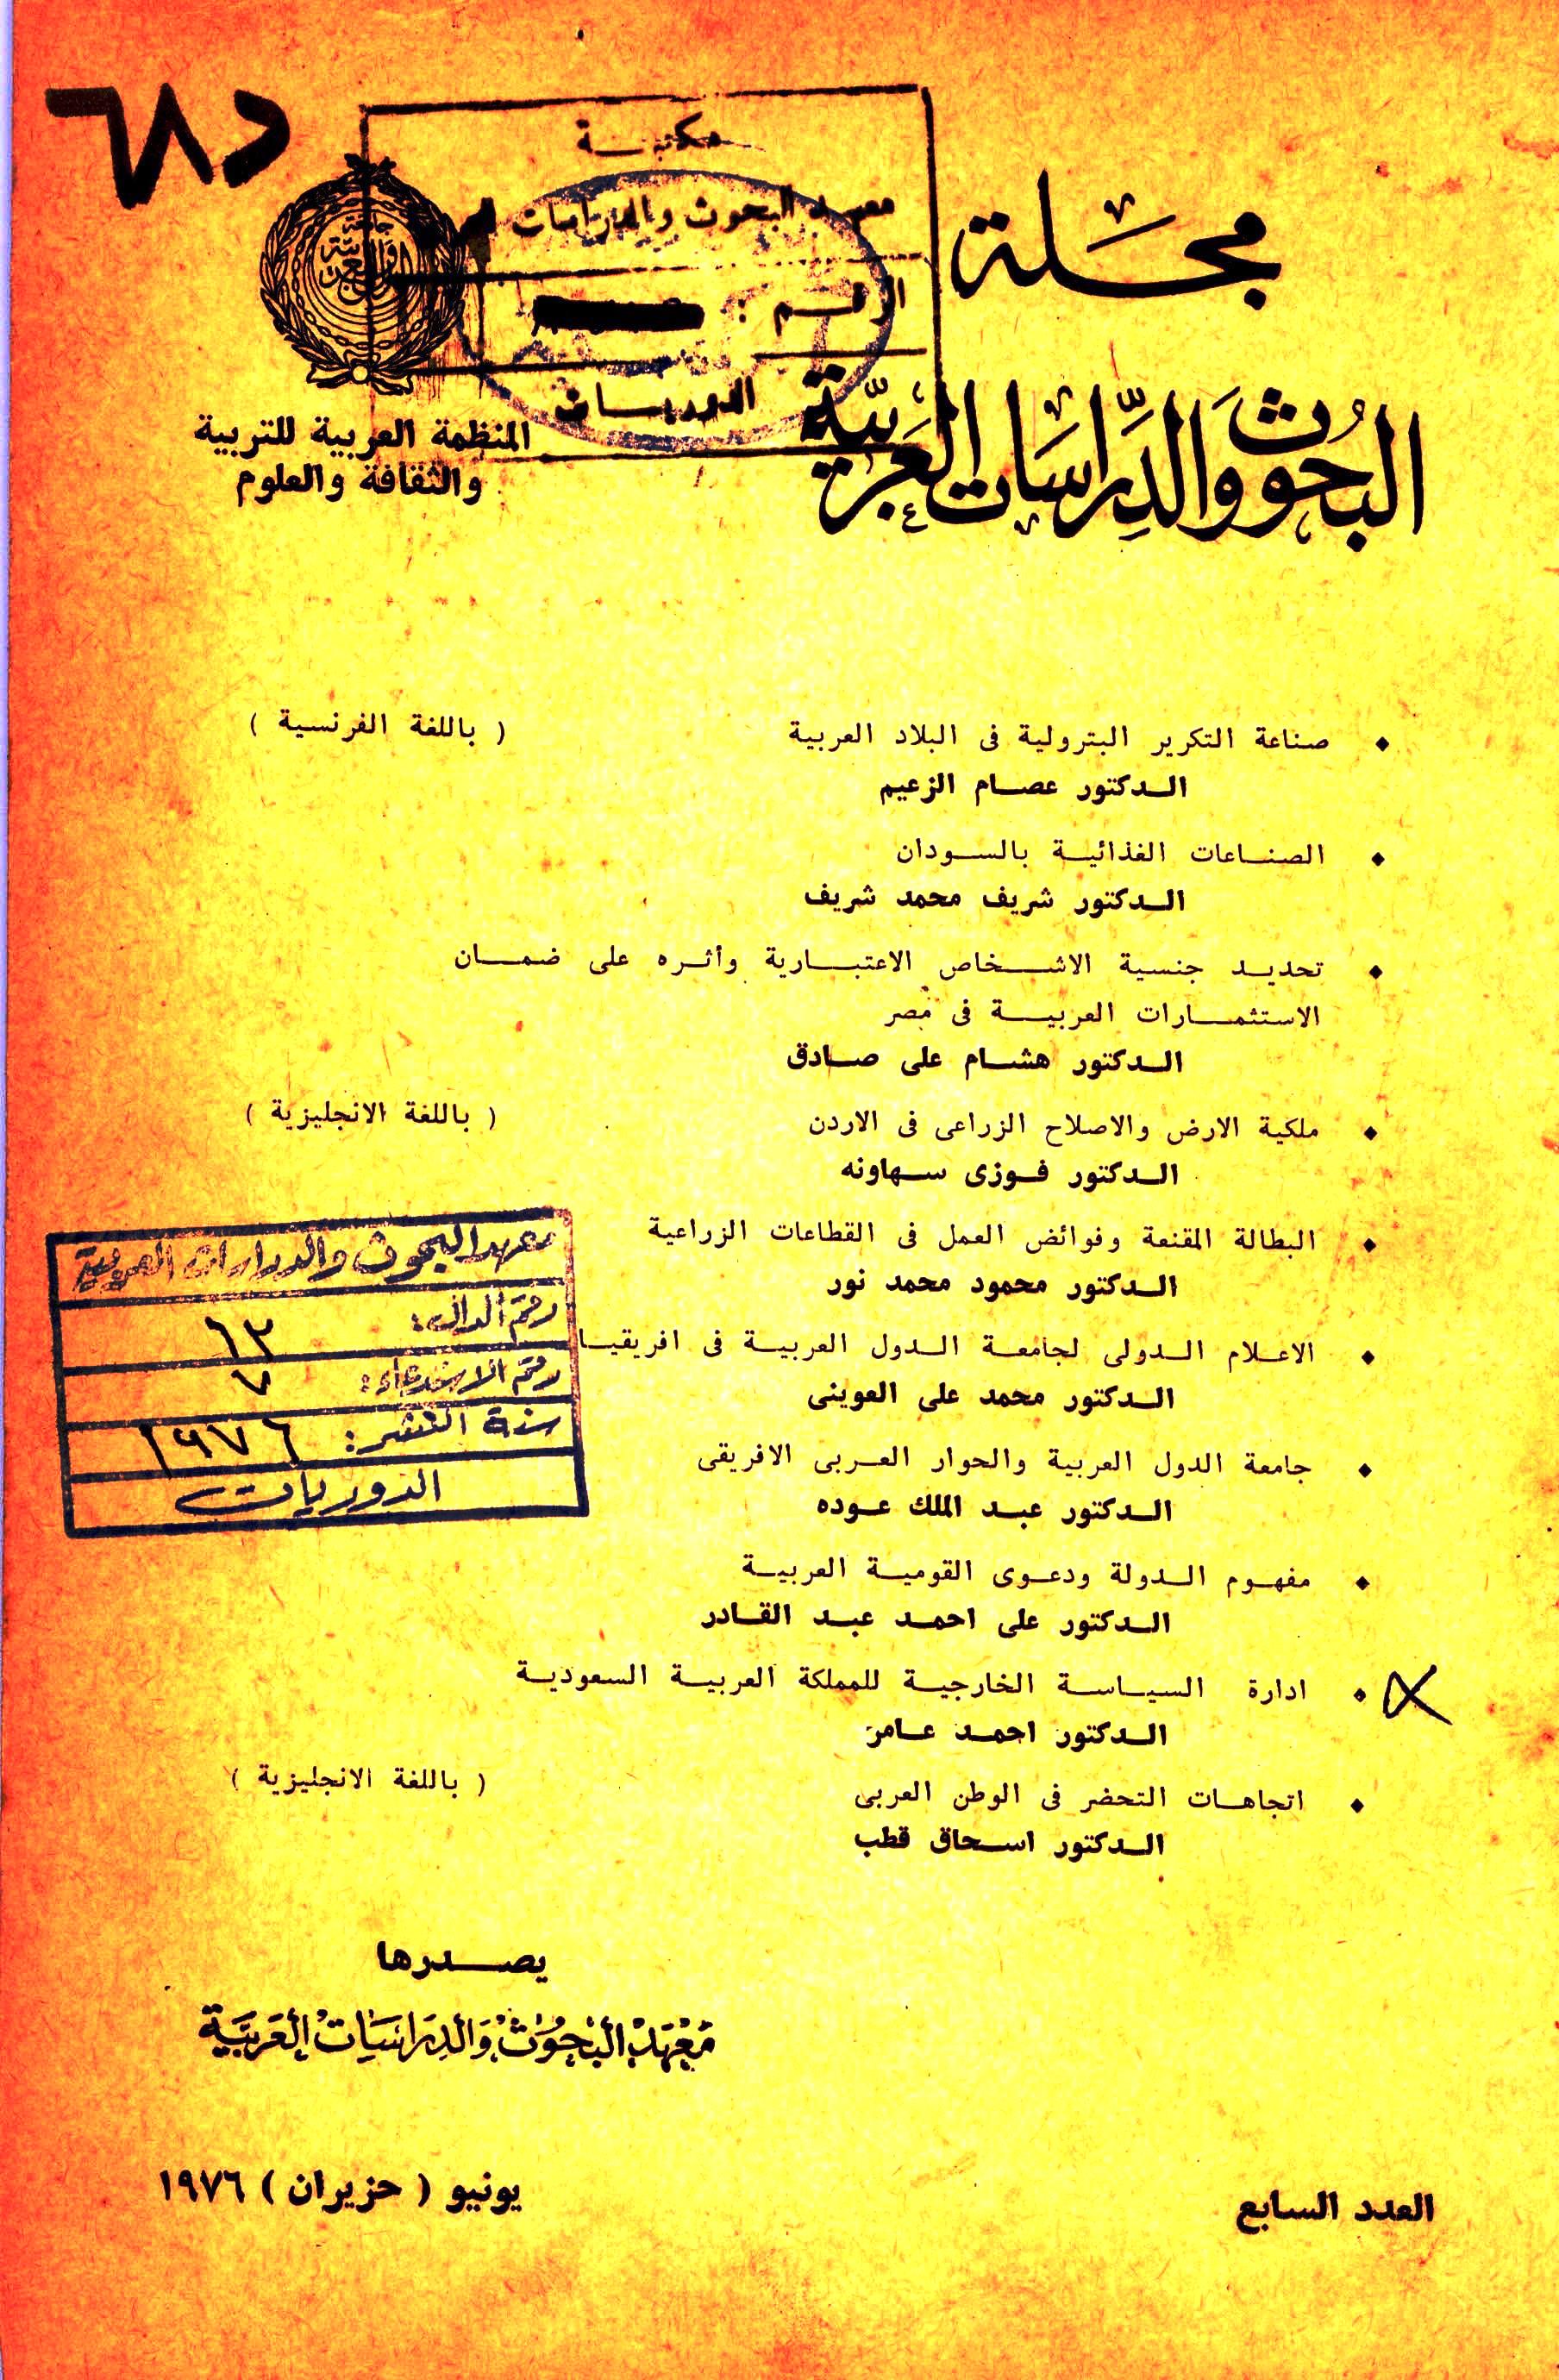 د ٦٨
مكتبة
معهد البحوث والدراسات
الرقم :
الدوريات
مجلة
البحوث والدراسات العربية
جامعة
المنظمة العربية للتربية
والثقافة والعلوم
♦ صناعة التكرير البترولية فى البلاد العربية ( باللغة الفرنسية )
الدكتور عصام الزعيم
♦ الصناعات الغذائية بالسودان
الدكتور شريف محمد شريف
♦ تحديد جنسية الاشخاص الاعتبارية وأثره على ضمان
الاستثمارات العربية فى مصر
الدكتور هشام على صادق
♦ ملكية الارض والاصلاح الزراعى فى الاردن ( باللغة الانجليزية )
الدكتور فوزى سهاونه
♦ البطالة المقنعة وفوائض العمل فى القطاعات الزراعية
الدكتور محمود محمد نور
♦ الاعلام الدولى لجامعة الدول العربية فى افريقيا
الدكتور محمد على العوينى
♦ جامعة الدول العربية والحوار العربى الافريقى
الدكتور عبد الملك عوده
♦ مفهوم الدولة ودعوى القومية العربية
الدكتور على احمد عبد القادر
♦ ادارة السياسة الخارجية للمملكة العربية السعودية
الدكتور احمد عامر
♦ اتجاهات التحضر فى الوطن العربى ( باللغة الانجليزية )
الدكتور اسحاق قطب
معهد البحوث والدراسات العربية
رقم الدال : ٦٢
رقم الاستدعاء : ٧
سنة النشر : ١٩٧٦
الدوريات
يصدرها
معهد البحوث والدراسات العربية
العدد السابع
يونيو ( حزيران ) ١٩٧٦